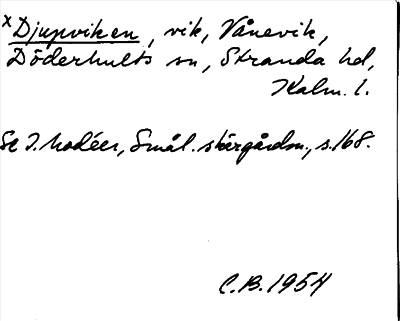 x Djupviken, vik, Vånevik,
Döderhults sn, Stranda hd,
Kalm. l.
Se I. Modéer, Smål. skärgårdsn., s. 168.
C.B. 1954